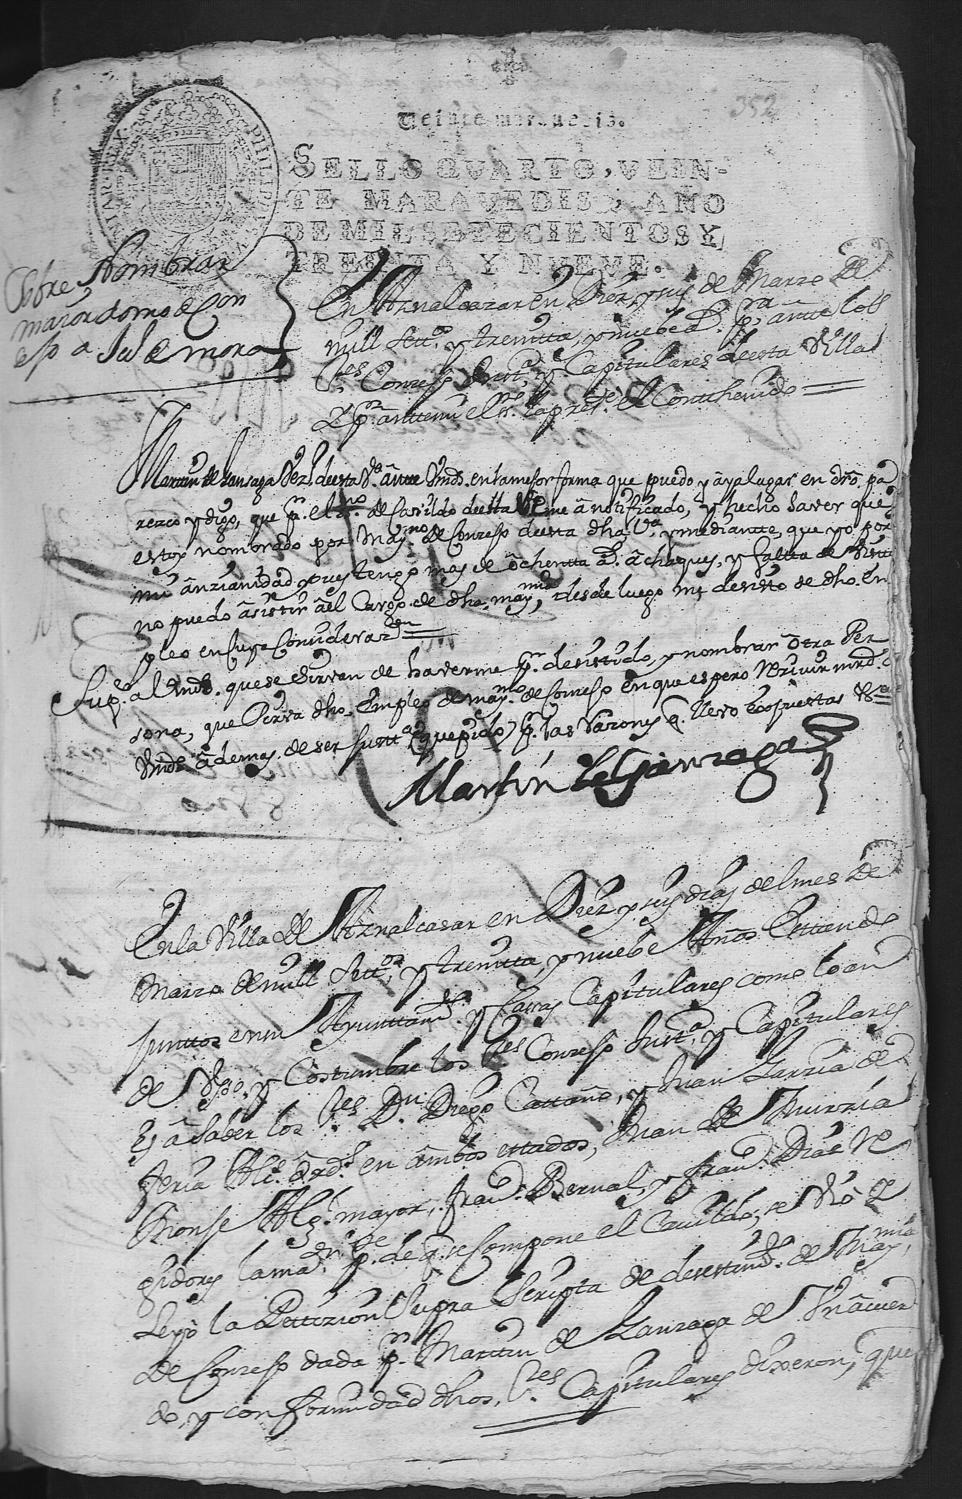 352
Veinte maravedis.
SELLO QVARTO, VEIN-
TE MARAVEDIS, AÑO
DE MIL SETECIENTOS Y
TREINTA Y NUEVE.
Sobre Nombrar
maiordomo de Con
esso a Jul de mora
En Aznalcazar en Diez y seis de Marzo de
mill Sett.os y treintta y nuebe a. p.a antte los
S.res Consejo Just.a y Capitulares de esta Villa
Martin de Ganzaga Vez.o de esta V.a antte Vmds. en la mejor forma que puedo y aya lugar en dro. pa
rezco y digo, que p.r el ss.no de Cavildo de esta V.a se me a nottificado, y hecho saver que
estoy nombrado por May.mo de Consejo de esta dha V.a y mediantte, que yo por
mi anzianidad, pues tengo mas de ochentta a.s achaques, y faltta de vistta
no puedo asistir a el Cargo de dho. may.mo, desde luego me desisto de dho. Em
pleo en Cuya Considerazon
Sup.co a Vmds. que se sirvan de haverme p.r desistido, y nombrar otra Per
sona, que sirva dho. Empleo de may.mo de Consejo en que espero Resivir mrd. de
Vmds. ademas de ser justt.a que pido p.r las Razones q. llevo Expuestas
Martin de Ganzaga
En la Villa de Aznalcasar en Diez y seis dias del mes de
Marzo de mill Sett.os y treintta y nuebe Años Estando
Junttos en su Ayunttam.to y Casas Capitulares como lo an
de Vsso, y Costumbre los S.res Consejo Just.a y Capitulares
Es a Saber los S.res D.n Diego Cattaño, y Juan Garzia de
feria Alc.s ord.s en ambos esttados, Juan de Murzia
Alg. mayor, fran.co Bernal, y fran.co Dias Re
gidores la ma.or p.te de q. se Compone el Cavildo, se Vio e
Leyo la Pettizion Supra Scripta de desistim.to de May.mia
de Consejo dada p.r Martin de Ganzaga de Vn acuer
do, y conformidad dhos. S.res Capitulares dixeron, que